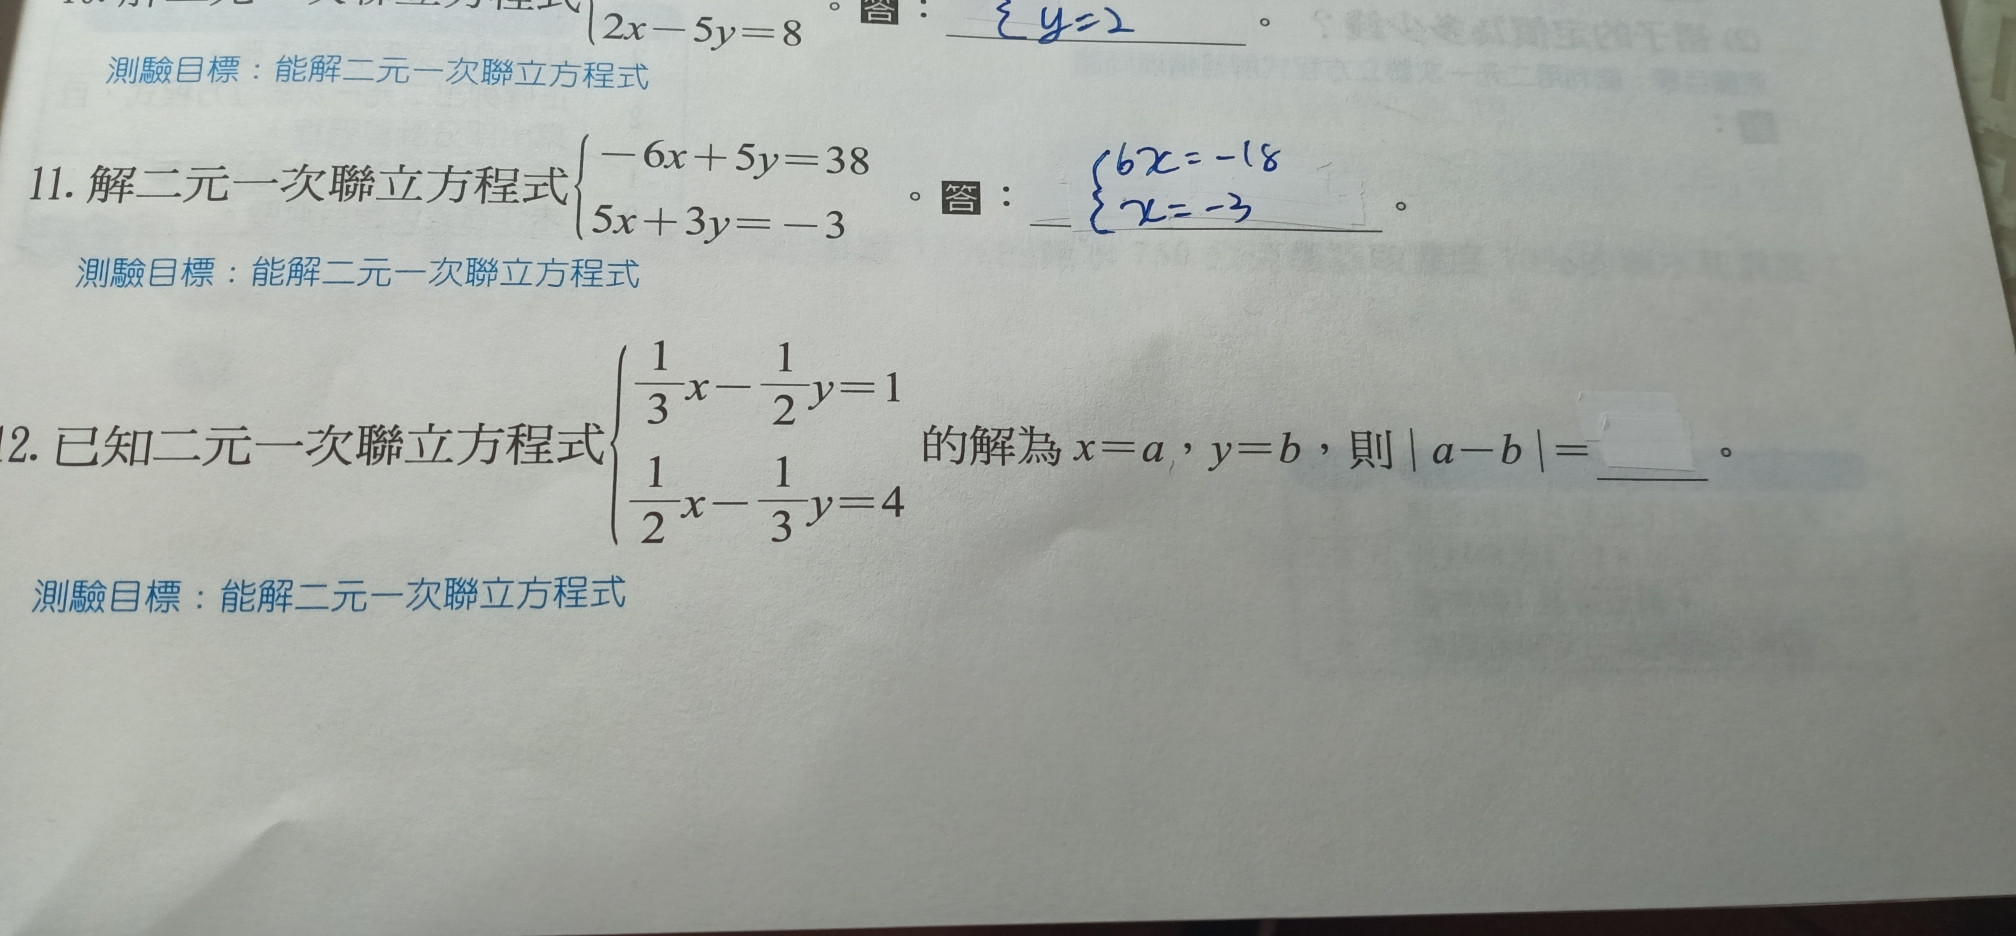 2x－5y＝8 。答： { y=2 。
測驗目標：能解二元一次聯立方程式
11. 解二元一次聯立方程式 { －6x＋5y＝38 。答： { 6x=-18
5x＋3y＝－3 x=-3 。
測驗目標：能解二元一次聯立方程式
12. 已知二元一次聯立方程式 { 1/3 x－1/2 y＝1
1/2 x－1/3 y＝4 的解為 x＝a，y＝b，則 | a－b |＝ 。
測驗目標：能解二元一次聯立方程式